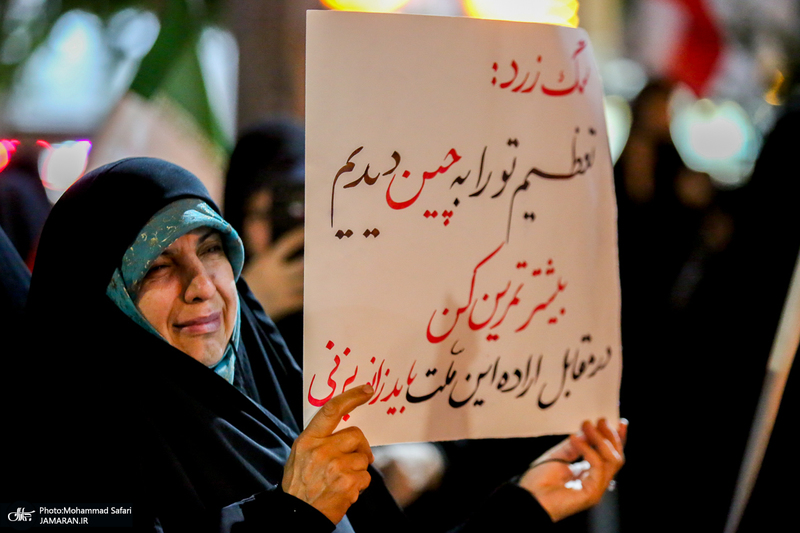 سگ زرد:
تعظیم تو را به چین دیدیم
بیشتر تمرین کن
در مقابل اراده این ملت باید زانو بزنی
Photo:Mohammad Safari
JAMARAN.IR